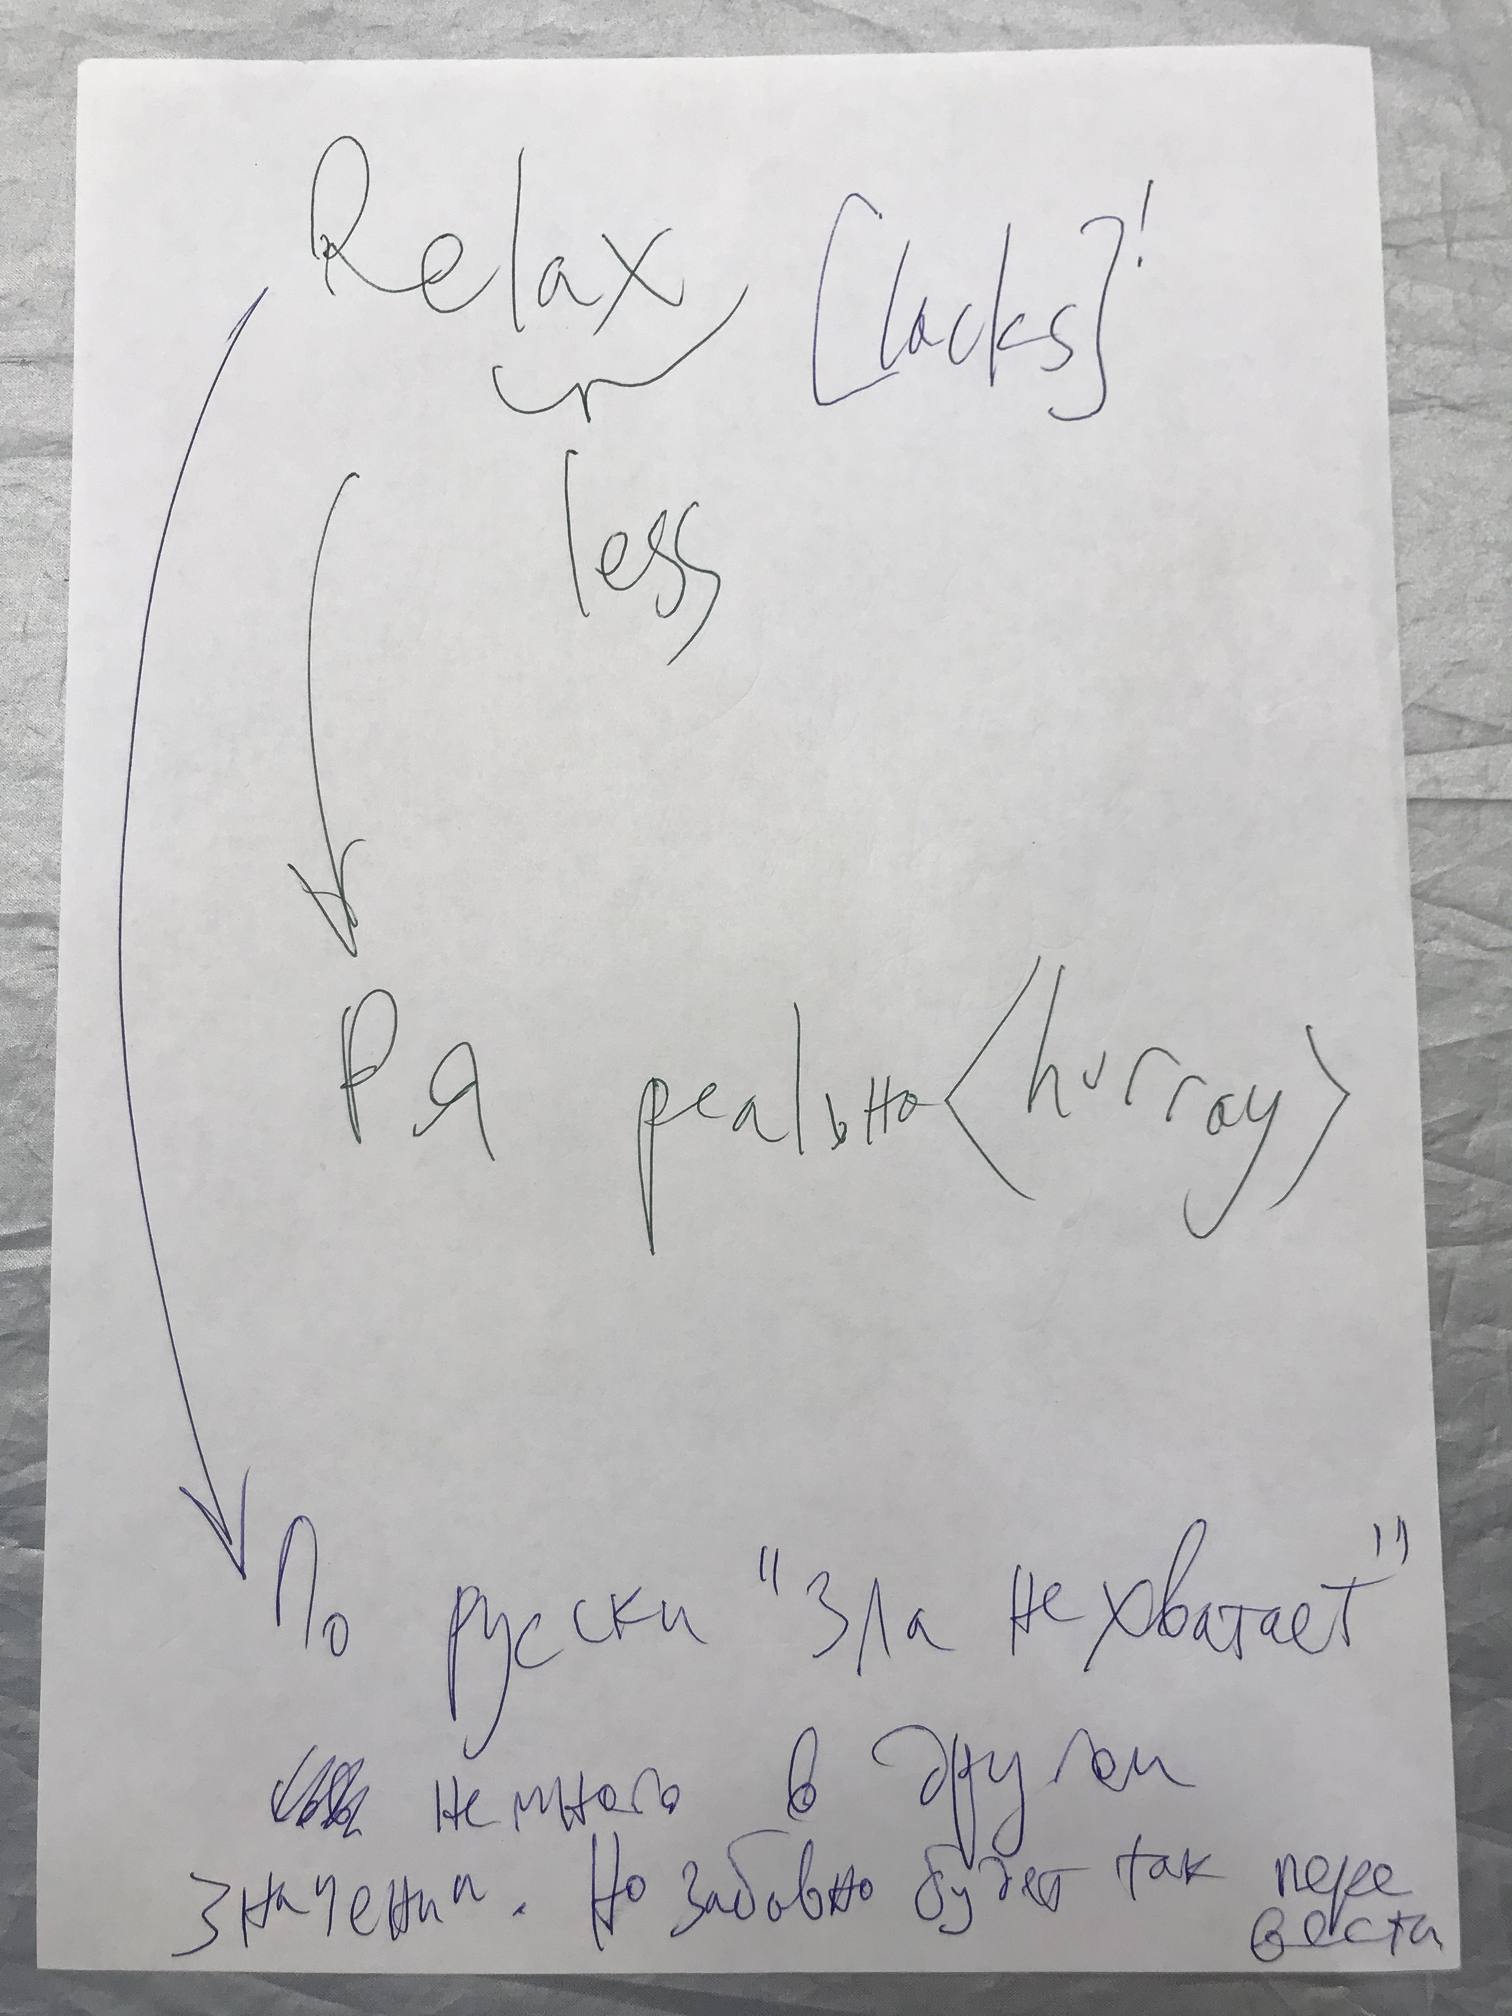 Relax [lacks]!
less
Ря реально <hurray>
По русски "Зла не хватает"
немного в другом
значении. Но забавно будет так пере
вести